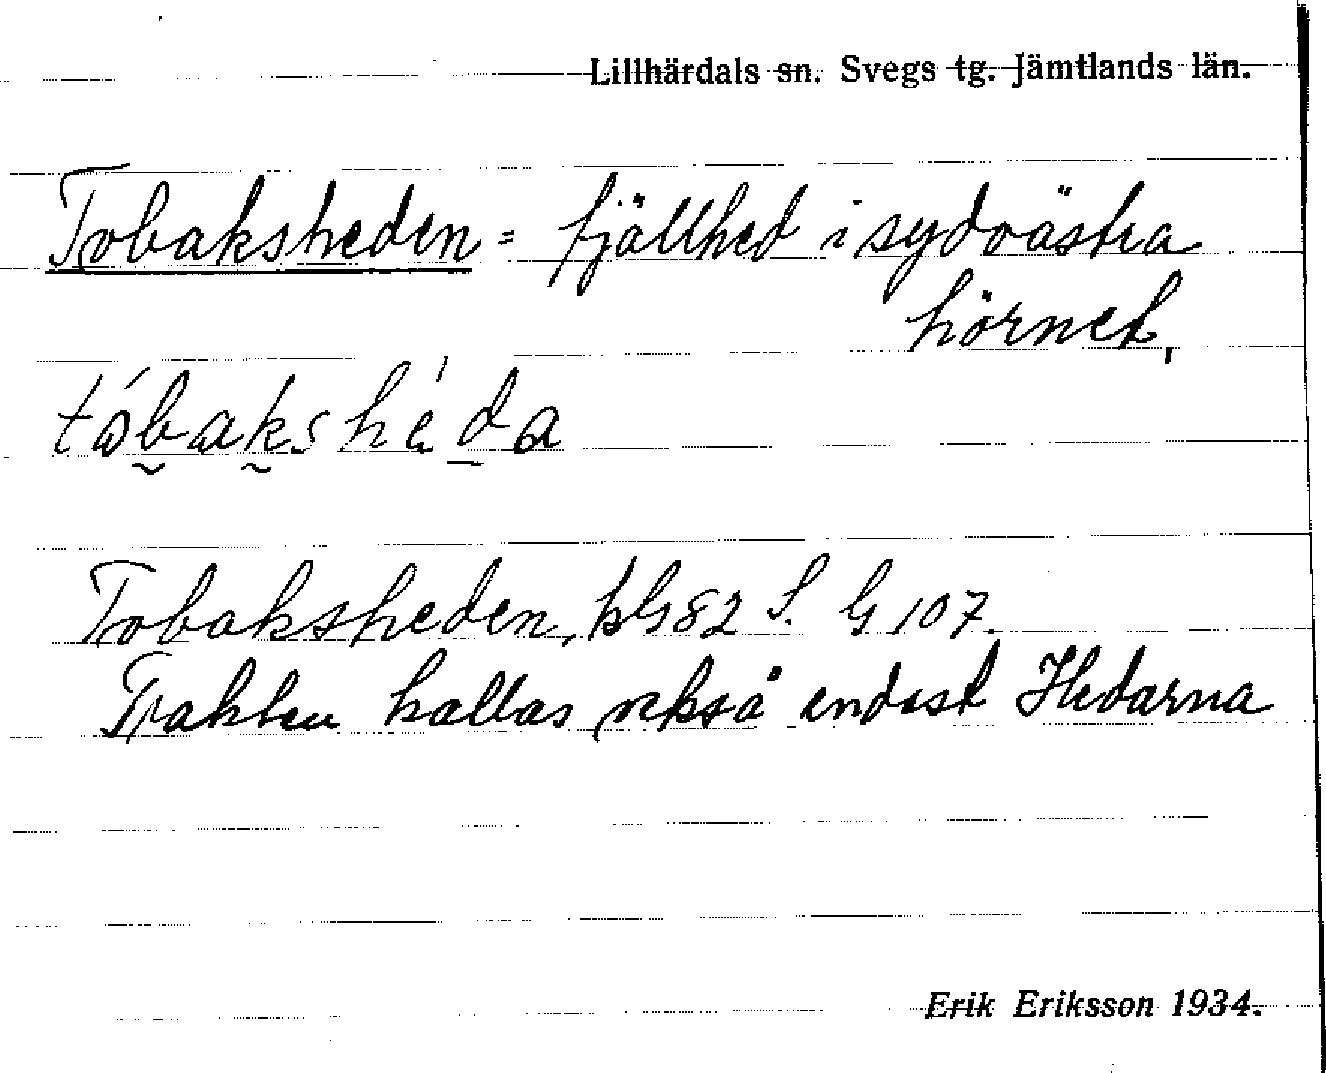 Lillhärdals sn. Svegs tg. Jämtlands län.
Tobaksheden = fjällhed i sydvästra
hörnet,
tóbakshéda
Tobaksheden, 82 S. G 107.
Trakten kallas också endast Hedarna
Erik Eriksson 1934.